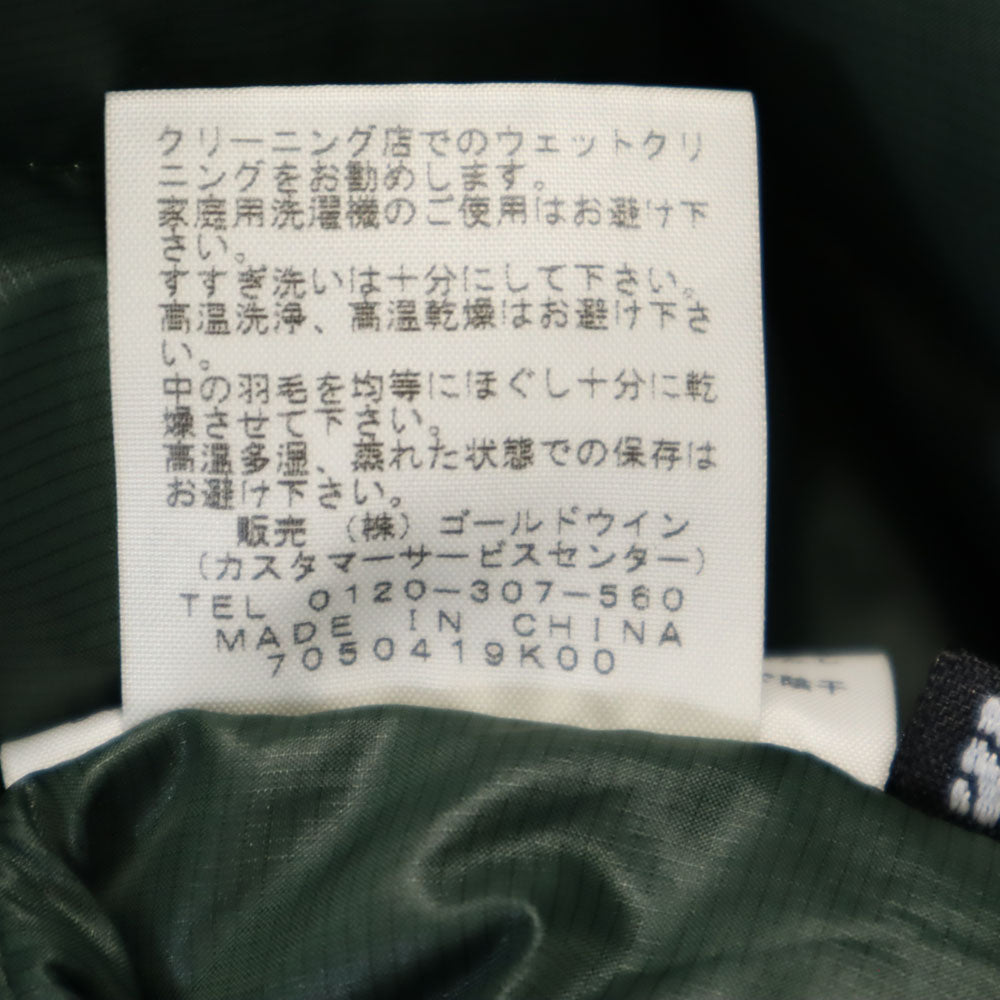 クリーニング店でのウェットクリ
ニングをお勧めします。
家庭用洗濯機のご使用はお避け下
さい。
すすぎ洗いは十分にして下さい。
高温洗浄、高温乾燥はお避け下さ
い。
中の羽毛を均等にほぐし十分に乾
燥させて下さい。
高温多湿、蒸れた状態での保存は
お避け下さい。
販売 （株）ゴールドウイン
（カスタマーサービスセンター）
TEL 0120-307-560
MADE IN CHINA
7050419K00
陰干